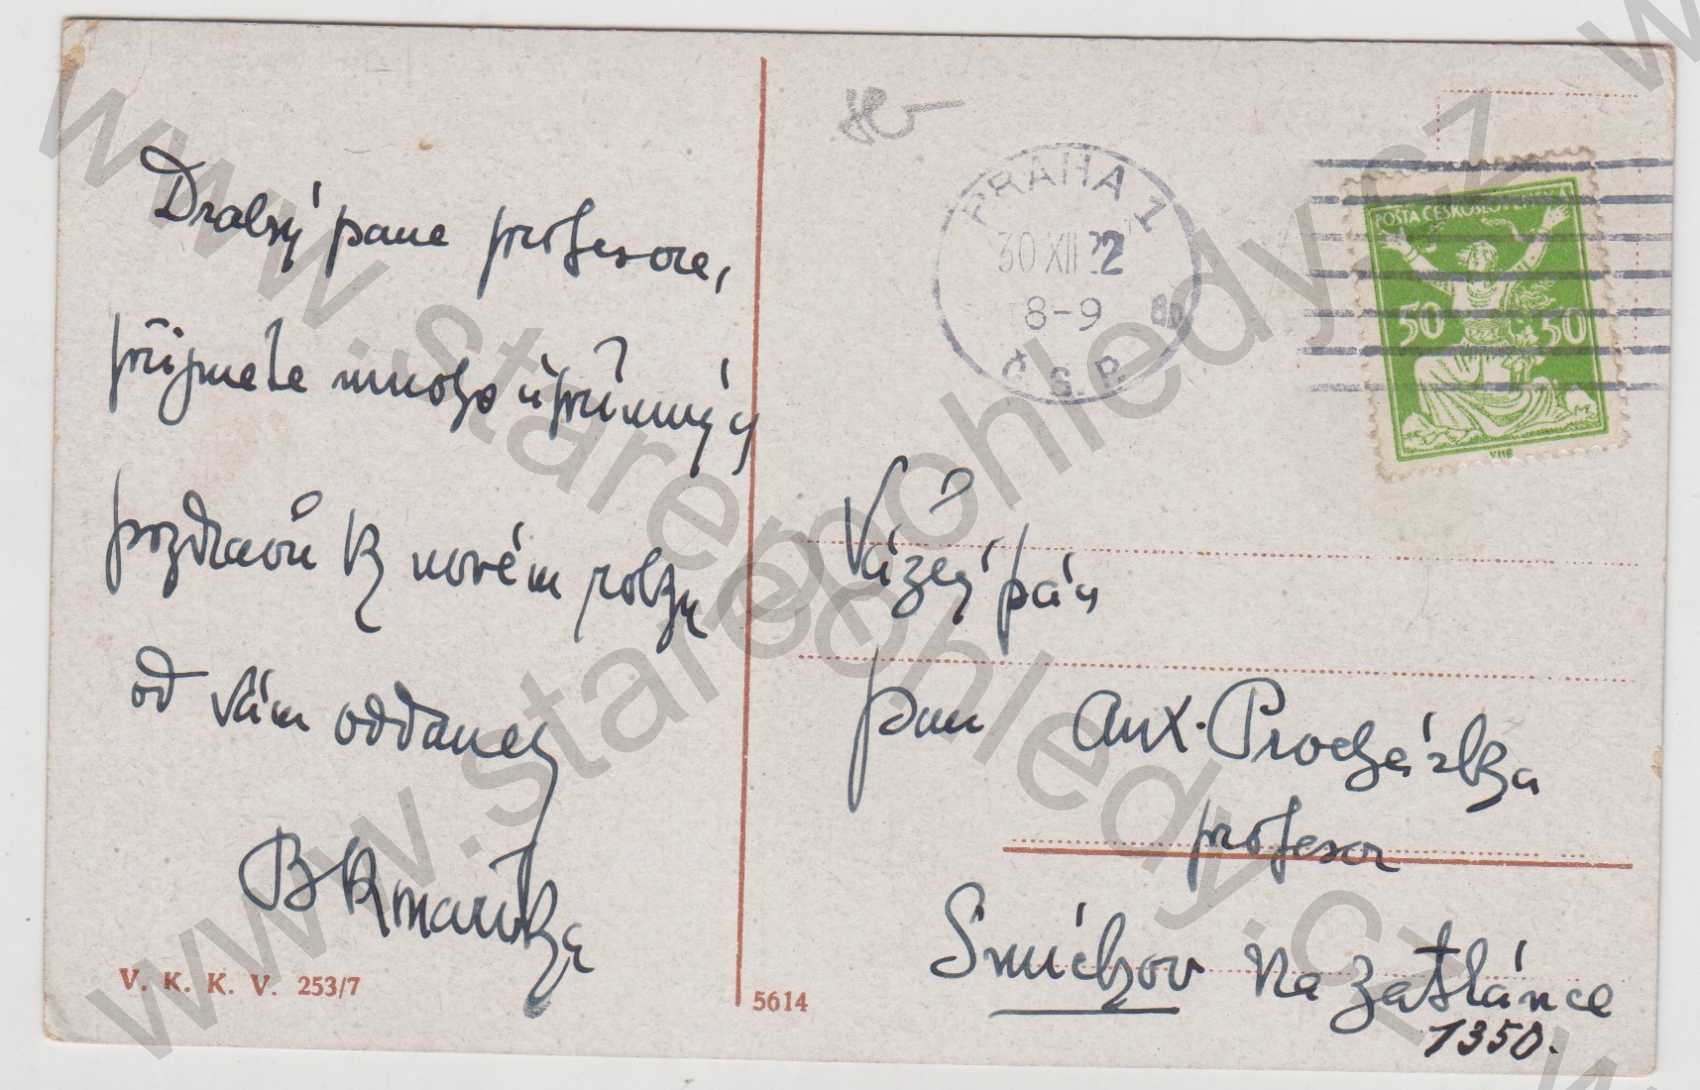 Drahý pane profesore,
přijměte mnoho upřímných
pozdravů k novém roku
od Vám oddané
V. K. K. V. 253/7
5614
PRAHA 1
30 XII 22
8-9
Č.S.R.
POŠTA ČESKOSLOVENSKÁ
50 50
Vážený pán
pan Ant. Procházka
profesor
Smíchov Na Zatlánce
1350.
www.starepohledy.cz
www.starepohledy.cz